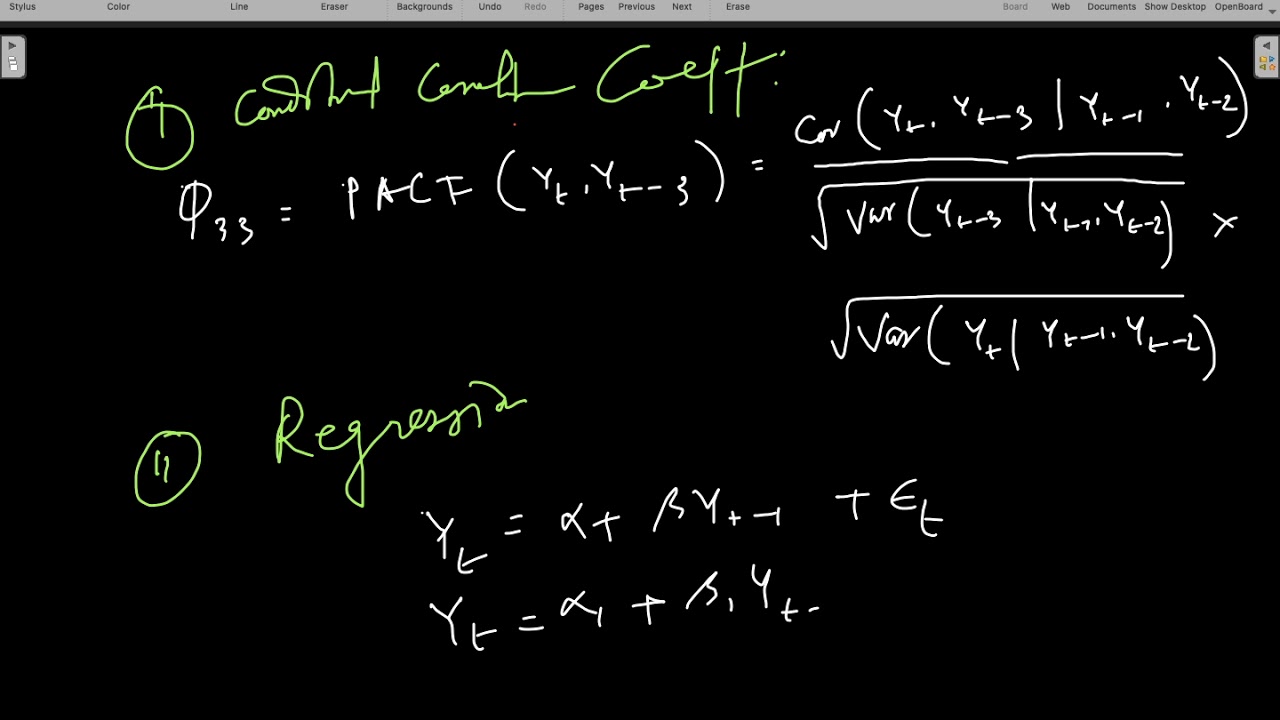 Stylus Color Line Eraser Backgrounds Undo Redo Pages Previous Next Erase Board Web Documents Show Desktop OpenBoard
I Coeff:
φ33 = PACF (Yt, Yt-3) = Cov (Yt, Yt-3 | Yt-1, Yt-2)
√Var (Yt-3 | Yt-1, Yt-2) ×
√Var (Yt | Yt-1, Yt-2)
II Regression
Yt = α + βYt-1 + ϵt
Yt = α1 + β1 Yt-